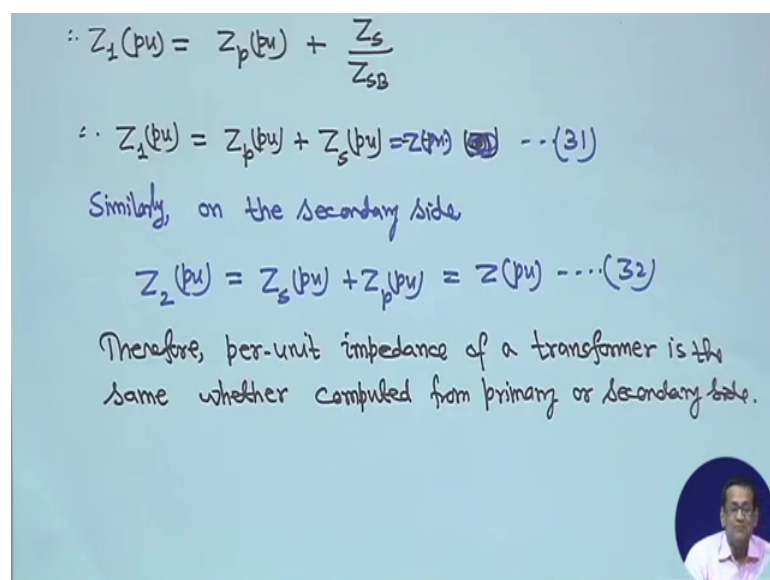 ∴ Z₁(pu) = Zₚ(pu) + Zₛ/Z_SB
∴ Z₁(pu) = Zₚ(pu) + Zₛ(pu) = Z(pu) --(31)
Similarly, on the secondary side
Z₂(pu) = Zₛ(pu) + Zₚ(pu) = Z(pu) ----(32)
Therefore, per-unit impedance of a transformer is the
same whether computed from primary or secondary side.